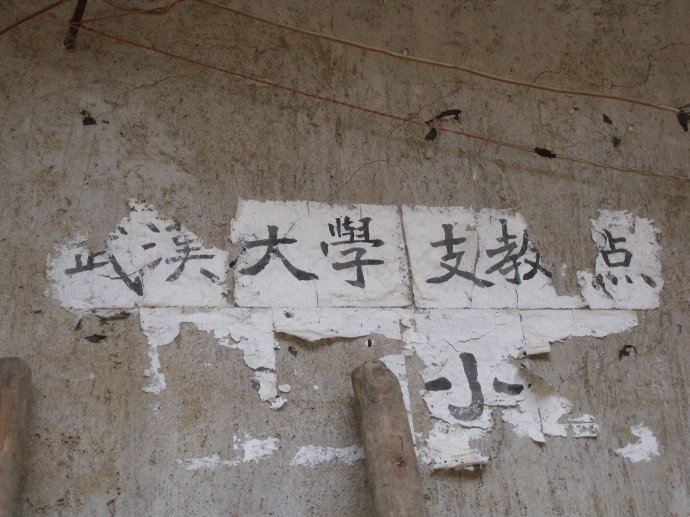 武漢大學支教点
小